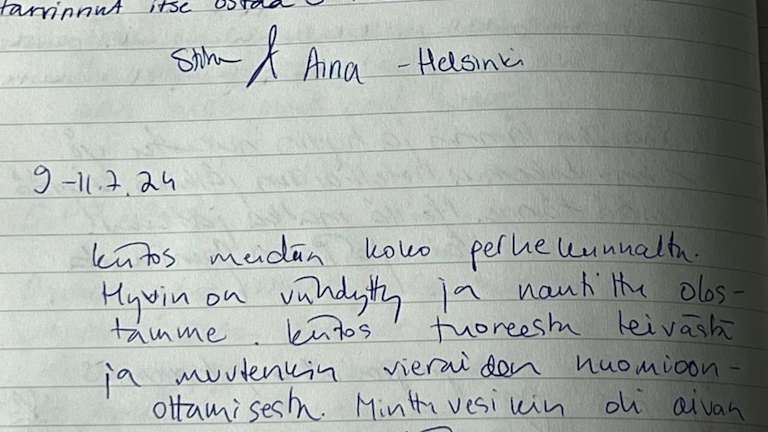 tarvinnut itse ostaa
& Aina - Helsinki
9-11.7.24
kiitos meidän koko perhekunnalta.
Hyvin on viihdytty ja nautittu olos-
tamme. kiitos tuoreesta leivästä
ja muutenkin vieraiden huomioon-
ottamisesta. Minttuvesikin oli aivan